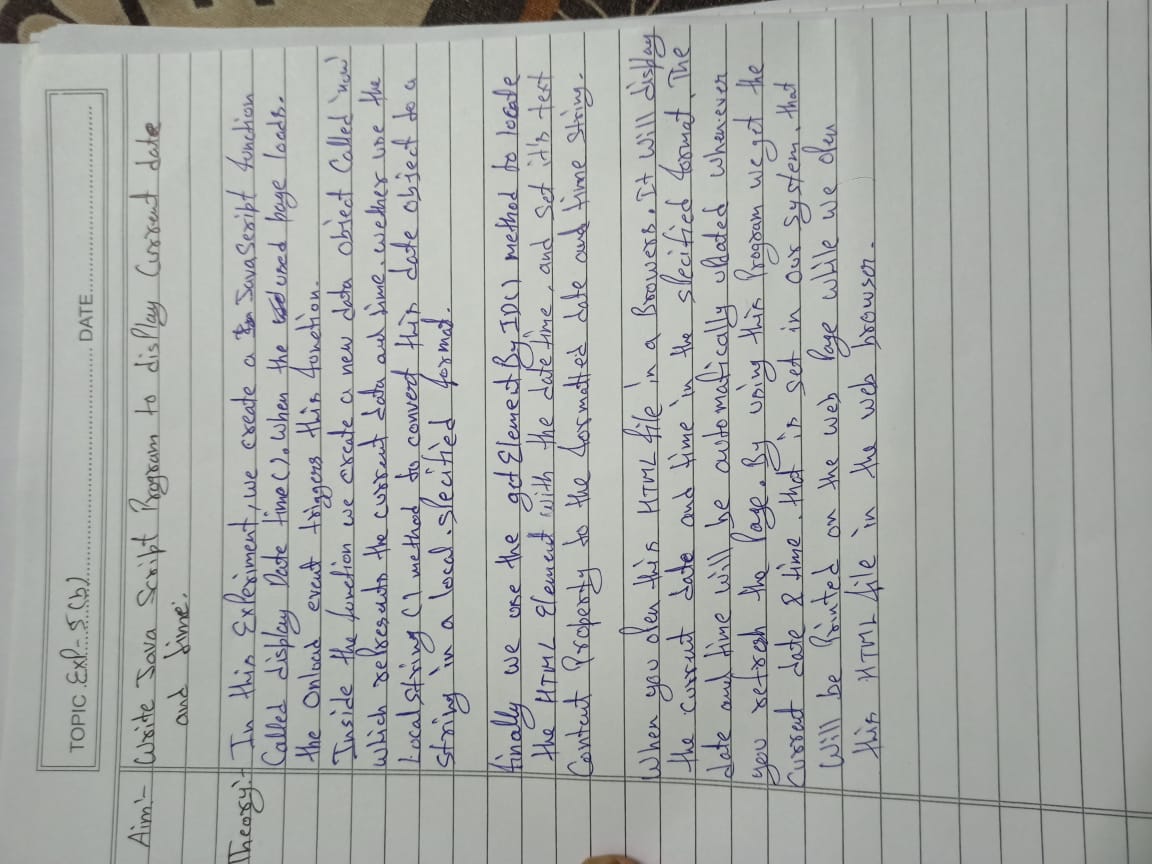 TOPIC Exp-5(b) DATE
Aim:- Write Java Script Program to display Current date
and time.
Theory:- In this Experiment, we create a JavaScript function
Called display Date time(). When the used page loads.
the Onload event triggers this function.
Inside the function we create a new data object Called 'now'
which represents the current data and time. wether use the
Local String () method to convert this date object to a
string in a local. specified format.
finally we use the get Element By ID() method to locate
the HTML Element with the date time, and Set it's text
Content Property to the formatted date and time String.
When you open this HTML file in a Browers. It will display
the current date and time in the specified format. The
date and time will be automatically updated whenever
you refresh the Page. By using this Program we get the
Current date & time. that is set in our system. that
Will be Printed on the web Page while we open
this HTML file in the web browser.